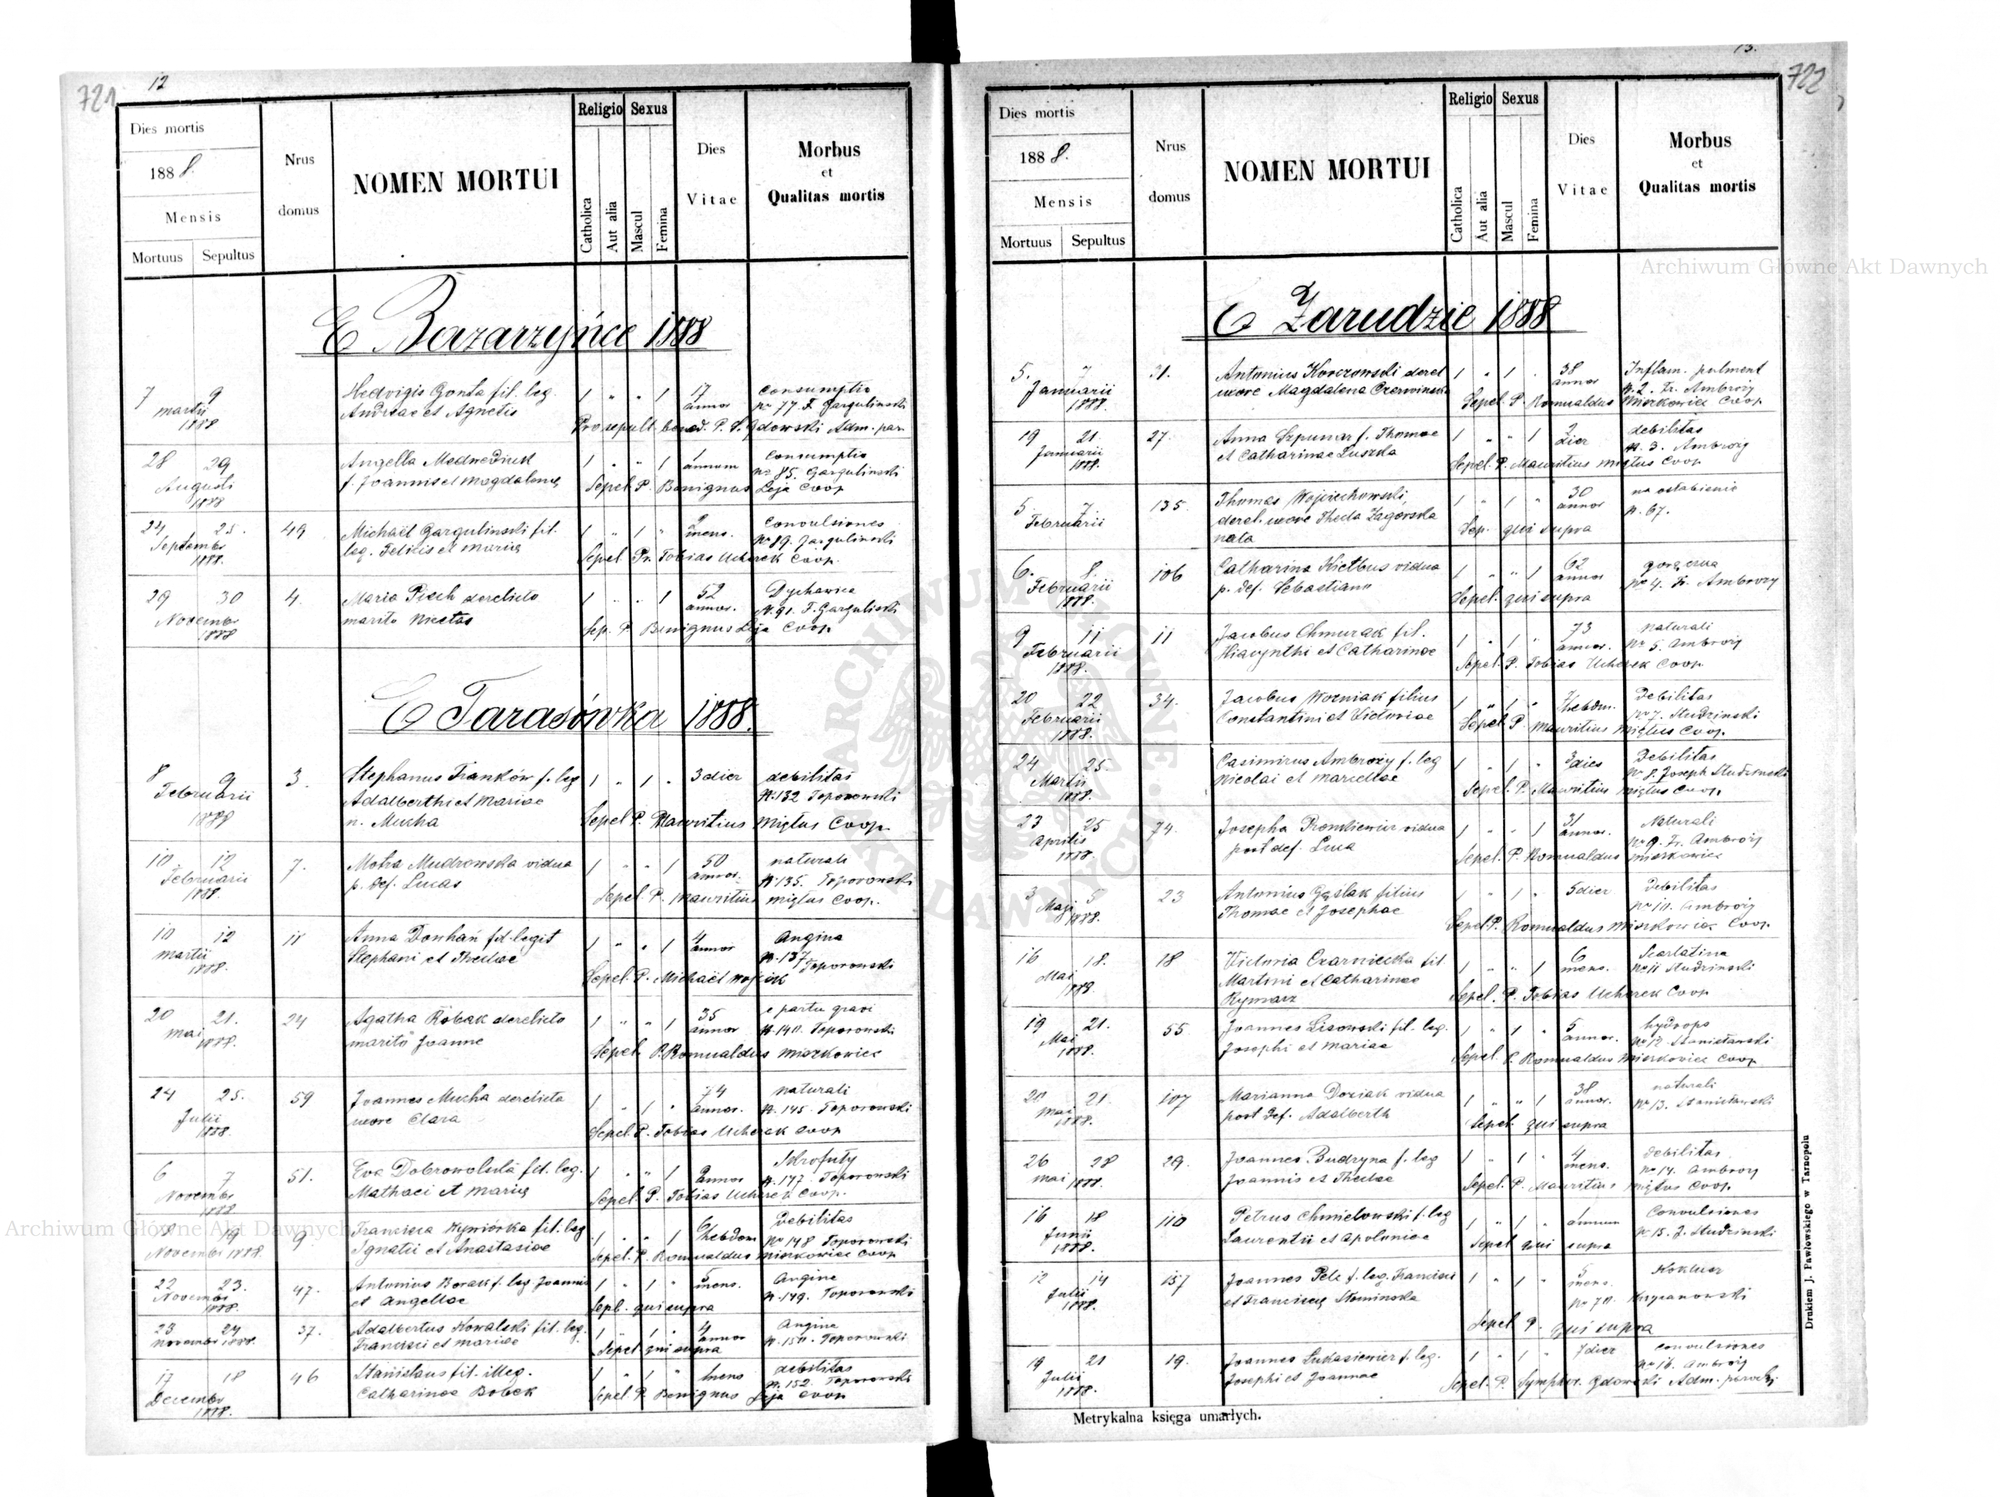 721
12
Dies mortis
1888.
Mensis
Mortuus Sepultus
Nrus domus
NOMEN MORTUI
Religio
Catholica
Aut alia
Sexus
Mascul
Femina
Dies Vitae
Morbus
et
Qualitas mortis
E Bazarzyńce 1888
7 9 Hedvigis Gonta fil. leg. 1 " " 1 17 Consumptio
martii Andreae et Agnetis annor No 77 F. Gargulinski
1888 Pro sepult. bened. P. S. Gdowski Adm. par.
28 29 Angella Medwediuk 1 " " 1 1 Consumptio
Augusti f. Joannis et Magdalenae annum No 85. Gargulinski
1888 Sepel. P. Benignus Leja Coop
24 25. 49 Michaël Gargulinski fil. 1 " 1 " mens. Convulsiones
Septembr leg. Felicis et Mariae No 89. Gargulinski
1888. Sepel Pr. Tobias Ucherek Coop.
29 30 4. Maria Pisch derelicto 1 " " 1 52 Dychawica
Novembr marito annor. N. 91. F. Gargulinski
1888 Sep. P. Benignus Leja Coop
E Tarasówka 1888.
8 9 3. Stephanus Franków f. leg 1 " 1 " 3 dier debilitas
Februarii Adalberthi et Mariae N. 132 Toporowski
1888 n. Mucha Sepel P. Mauritius Miętus Coop
10 12 7. Mudrowska vidua 1 " " 1 50 naturali
Februarii p. def. Lucas annor. N. 135. Toporowski
1888. Sepel P. Mauritius Miętus Coop.
10 12 11 Anna Donhań fil. legit 1 " " 1 4 Angina
martii Stephani et Theclae annor N. 137 Toporowski
1888. Sepel. P. Michaël
20 21. 24 Agatha Robak derelicto 1 " " 1 35 e partu gravi
mai marito Joanne annor N. 140. Toporowski
1888. Sepel. P. Romualdus Mierkowicz
24 25. 59 Joannes Mucha derelicta 1 " 1 " 74 naturali
Julii uxore Clara annor. N. 145. Toporowski
1888. Sepel. P. Tobias Ucherek Coop
6 7 51. Eva fil. leg. 1 " " 1 2 Skrofuły
Novembr Mathaei et Mariae annor N. 147. Toporowski
1888 Sepel. P. Tobias Ucherek Coop.
8 9 9 Francisca fil. leg 1 " " 1 hebdom Debilitas
Novembr 1888. Ignatii et Anastasiae No 148 Toporowski
Sepel. P. Romualdus Mierkowicz Coop
22 23. 47. Antonius Borak f. leg Joannis 1 " 1 " 5 Angina
Novembr et Angellae mens. N. 149. Toporowski
1888. Sepel. qui supra
23 24 37. Adalbertus Kowalski fil. leg. 1 " 1 " 4 Angina
Novembr 1888. Francisci et Mariae annor N. 150. Toporowski
Sepel qui supra
17 18 46 Stanislaus fil. illeg. 1 " 1 " mens debilitas
Decembr Catharinae Bobek N. 152. Toporowski
1888. Sepel P. Benignus Leja Coop
13.
722
Dies mortis
1888.
Mensis
Mortuus Sepultus
Nrus domus
NOMEN MORTUI
Religio
Catholica
Aut alia
Sexus
Mascul
Femina
Dies Vitae
Morbus
et
Qualitas mortis
E Zarudzie 1888
5. 7 31. Antonius derel 1 " 1 " 38 Inflam. pulment
Januarii uxore Magdalena Czerwinska annor N. 2. Fr. Ambroży
1888. Sepel. P. Romualdus Mierkowicz Coop
19 21. 27. Anna Szpunar f. Thomae 1 " " 1 2 debilitas
Januarii et Catharinae Luszka dier N. 3. Ambroży
1888. Sepel. P. Mauritius Miętus Coop
5 7. 135. Thomas Wojciechowski, 1 " 1 " 30 na osłabienie
Februarii derel. uxore Thecla Zagórska annor N. 67.
nata Sep. qui supra
6. 8. 106 Catharina Kiełbus vidua 1 " " 1 62 gorączka
Februarii p. def. Sebastiano annor No 4. Fr. Ambroży
1888. Sepel. qui supra
9 11 11 Jacobus Chmurak fil. 1 " 1 " 73 naturali
Februarii Hiacynthi et Catharinae annor. No 5. Ambroży
1888. Sepel. P. Tobias Ucherek Coop.
20 22 34. Jacobus Wozniak filius 1 " 1 " hebdom. Debilitas
Februarii Constantini et Victoriae No 7. Studzinski
1888. Sepel P. Mauritius Miętus Coop.
24 25. Casimirus Ambroży f. leg 1 " 1 " 3 dies Debilitas
Martii Nicolai et Marcellae No 8. Joseph Studzinski
1888. Sepel. P. Mauritius Miętus Coop.
23 25 74. Josepha vidua 1 " " 1 31 Naturali
Aprilis post def. Luca annor. No 9. Fr. Ambroży
1888. Sepel. P. Romualdus Mierkowicz
3 5 23 Antonius Gęślak filius 1 " 1 " 5 dier Debilitas
Maji Thomae et Josephae No 10. Ambroży
1888. Sepel P. Romualdus Mierkowicz Coop.
16 18. 18 Victoria Czarniecka fil 1 " " 1 6 Scarlatina
Mai Martini et Catharinae mens. No 11 Studzinski
1888. Rymarz Sepel. P. Tobias Ucherek Coop
19 21. 55 Joannes Lisowski fil. leg. 1 " 1 " 5 hydrops
Mai Josephi et Mariae annor. No 12 Stanisławski
1888. Sepel. P. Romualdus Mierkowicz Coop
20 21. 107 Marianna Doziak vidua 1 " " 1 38 naturali
mai post def. Adalberth annor. No 13. Stanisławski
1888. Sepel. qui supra
26 28 29. Joannes Budzyna f. leg 1 " 1 " 4 debilitas
mai 1888. Joannis et Theclae mens. No 14. Ambroży
Sepel P. Mauritius Miętus Coop.
16 18 110 Petrus Chmielowski f. leg 1 " 1 " 1 Convulsiones
Junii Laurentii et Apoloniae annum N. 15. J. Studzinski
1888. Sepel qui supra
12 14 157 Joannes Pelc f. leg. Francisci 1 " 1 " 5 Koklusz
Julii et Franciscae Słominska mens.
1888. No 70
Sepel P. qui supra
19 21 19. Joannes Lukasiewicz f. leg. 1 " 1 " 7 dier convulsiones
Julii Josephi et Joannae No 16. Ambroży
1888. Sepel. P. Symphor. Gdowski Adm. parochj
Metrykalna księga umarłych.
Drukiem J. Pawłowskiego w Tarnopolu
Archiwum Główne Akt Dawnych
Archiwum Główne Akt Dawnych
ARCHIWUM GŁÓWNE AKT DAWNYCH